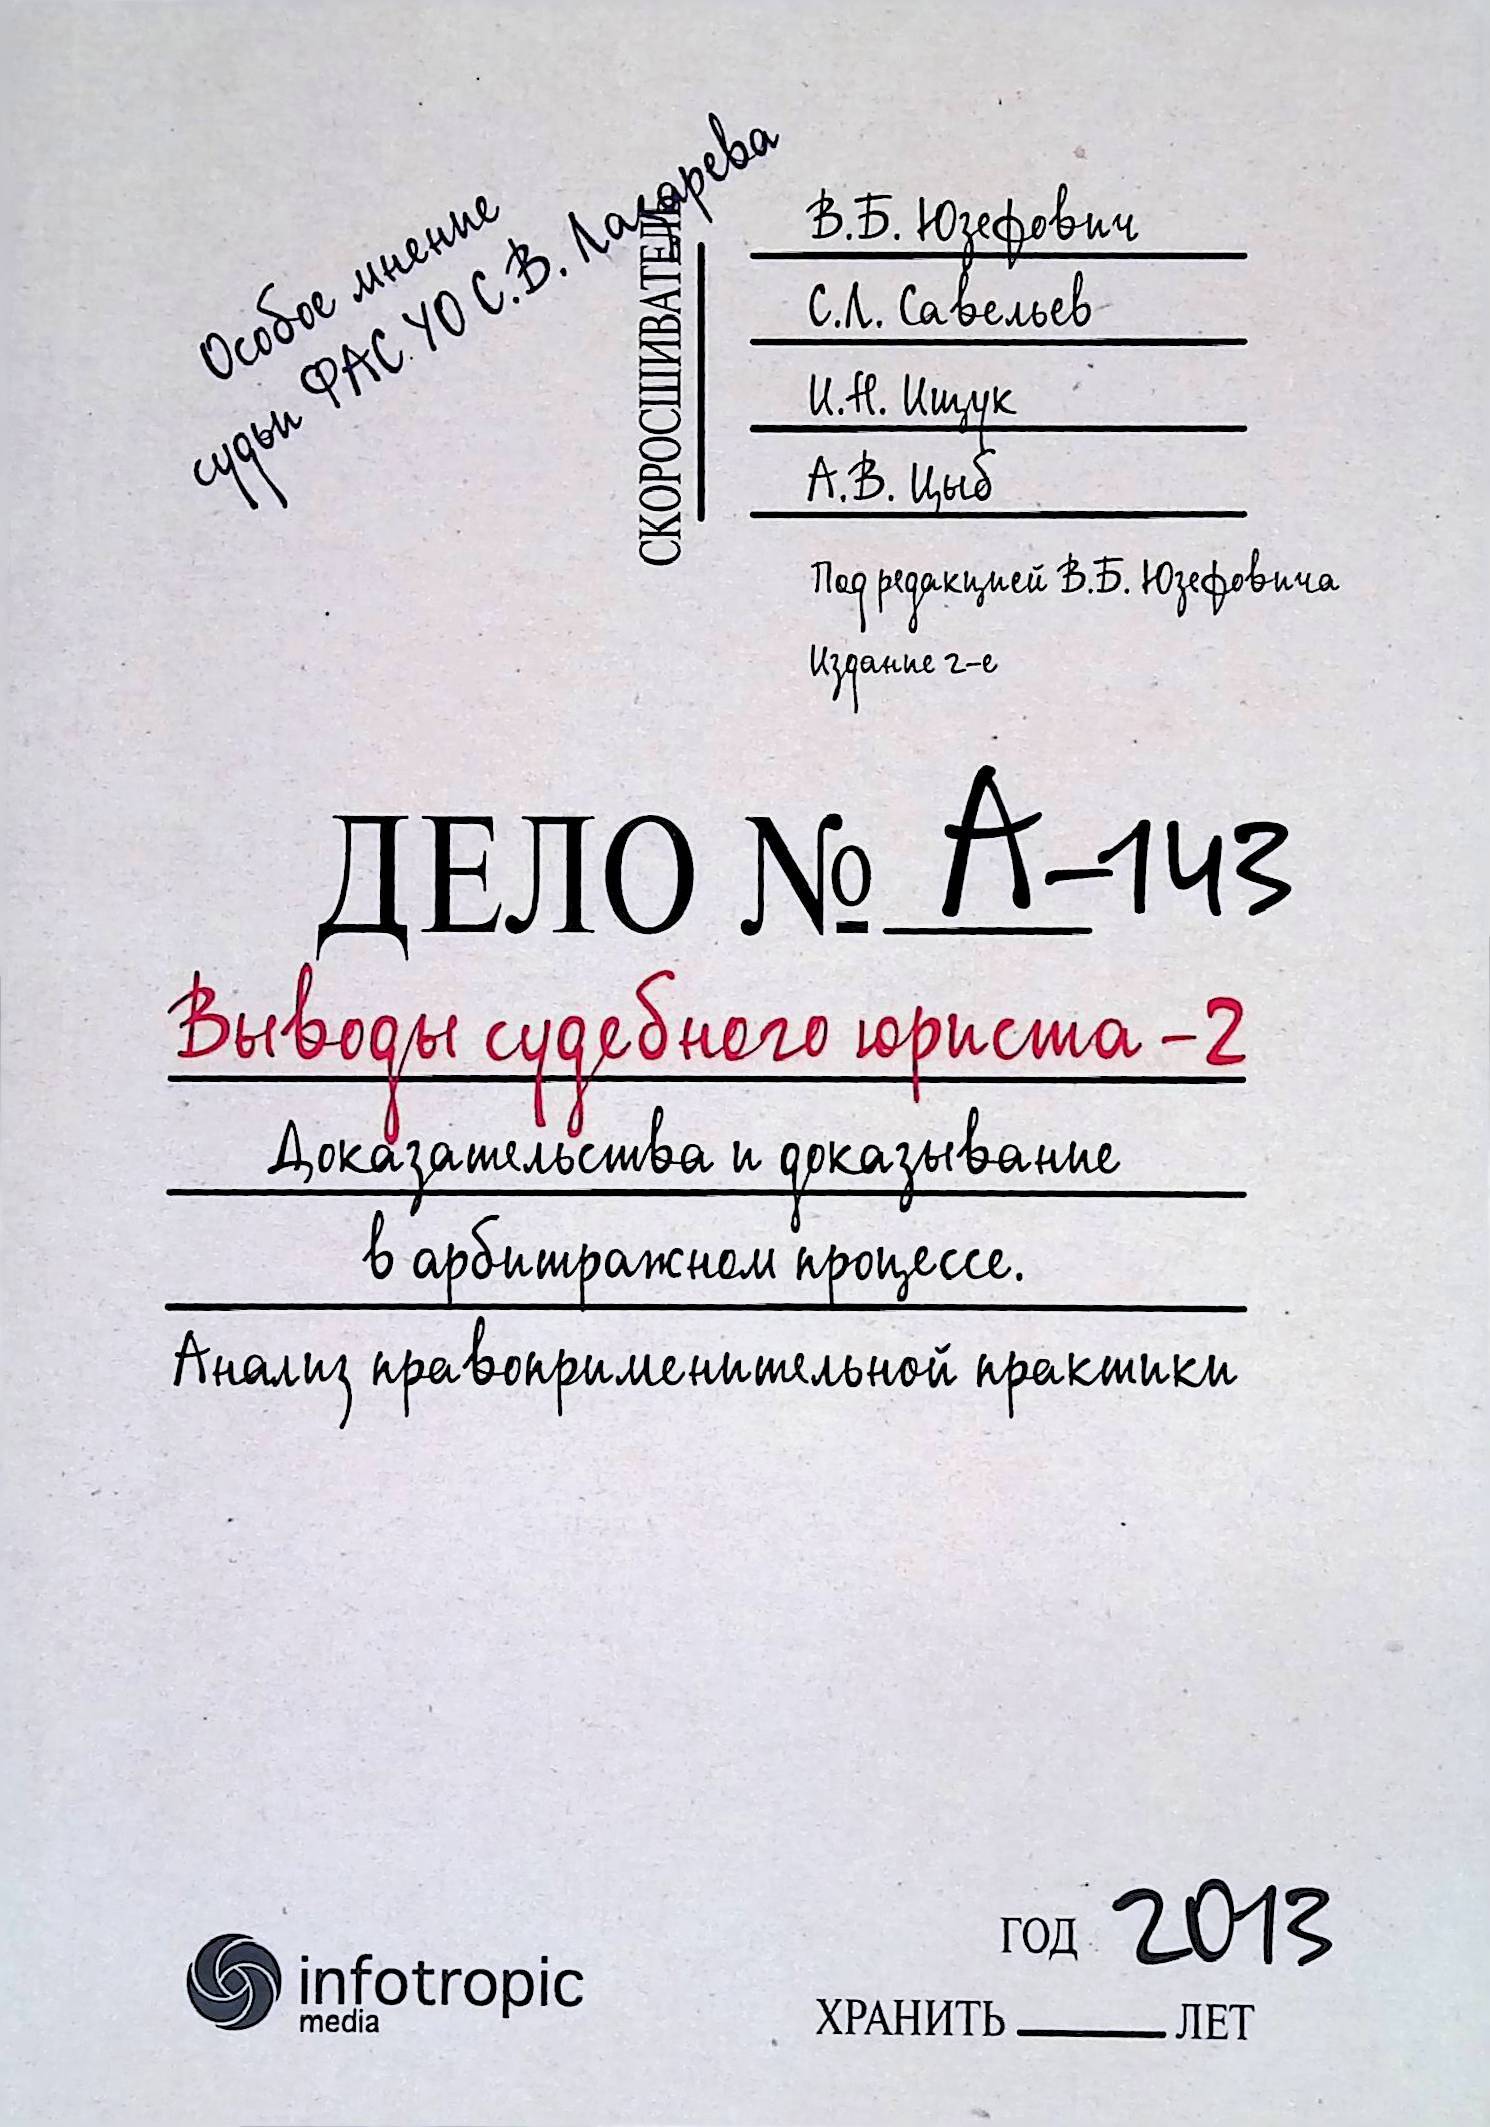 Особое мнение
судьи ФАС УО С.В. Лазарева
СКОРОСШИВАТЕЛЬ
В.Б. Юзефович
С.Л. Савельев
И.Н. Ищук
А.В. Цыб
Под редакцией В.Б. Юзефовича
Издание 2-е
ДЕЛО № А-143
Выводы судебного юриста -2
Доказательства и доказывание
в арбитражном процессе.
Анализ правоприменительной практики
infotropic
media
ГОД 2013
ХРАНИТЬ ЛЕТ